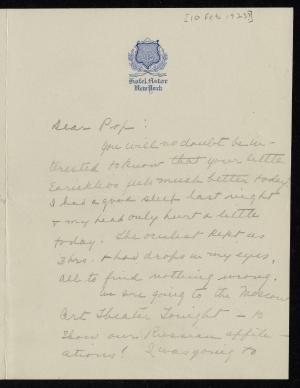 [10 Feb 1923?]
Hotel Astor
New York
Dear Pop:
You will no doubt be in-
terested to know that your little
feels much better today.
I had a good sleep last night
& my head only hurt a little
today. The oculist kept us
3 hrs. & had drops in my eyes,
all to find nothing wrong.
We are going to the Moscow
Art Theater Tonight – to
show our Russian affili-
ations! I was going to